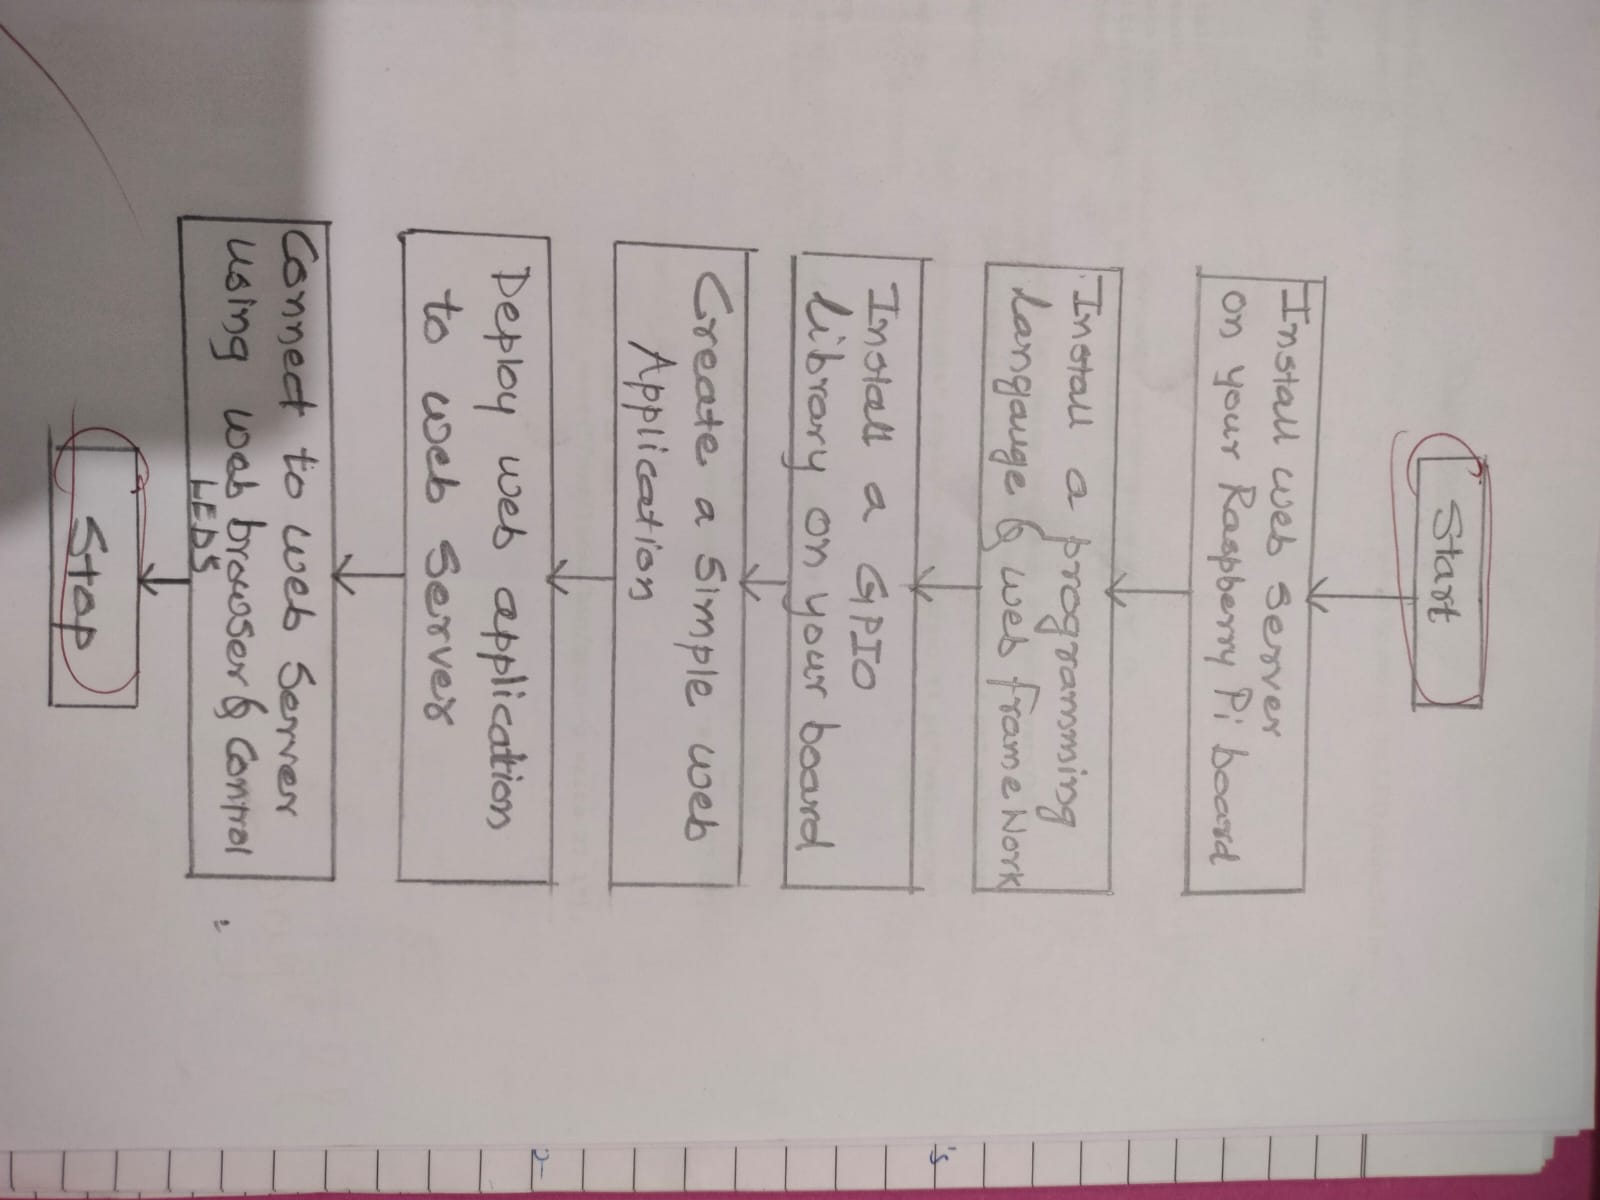 Start
Install web server
on your Raspberry Pi board
Install a programming
Langauge & web frameWork
Install a GPIO
library on your board
Create a Simple web
Application
Deploy web application
to web Server
Connect to web Server
using web browser & Control
LEDs
Stop